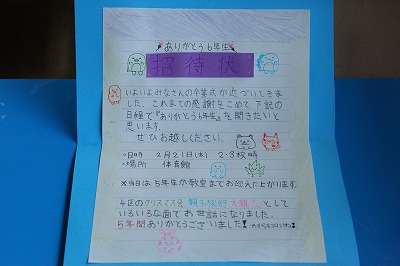 ありがとう6年生
招待状
いよいよみなさんの卒業式が近づいてきま
した。これまでの感謝をこめて下記の
日程で『ありがとう6年生』を開きたいと
思います。
ぜひお越しください。
・日時 2月21日(木) 2・3校時
・場所 体育館
※当日は5年生が教室までお迎えに上がります。
4区のクリスマス会、親子旅行、
として
いろいろな面でお世話になりました。
5年間ありがとうございました!